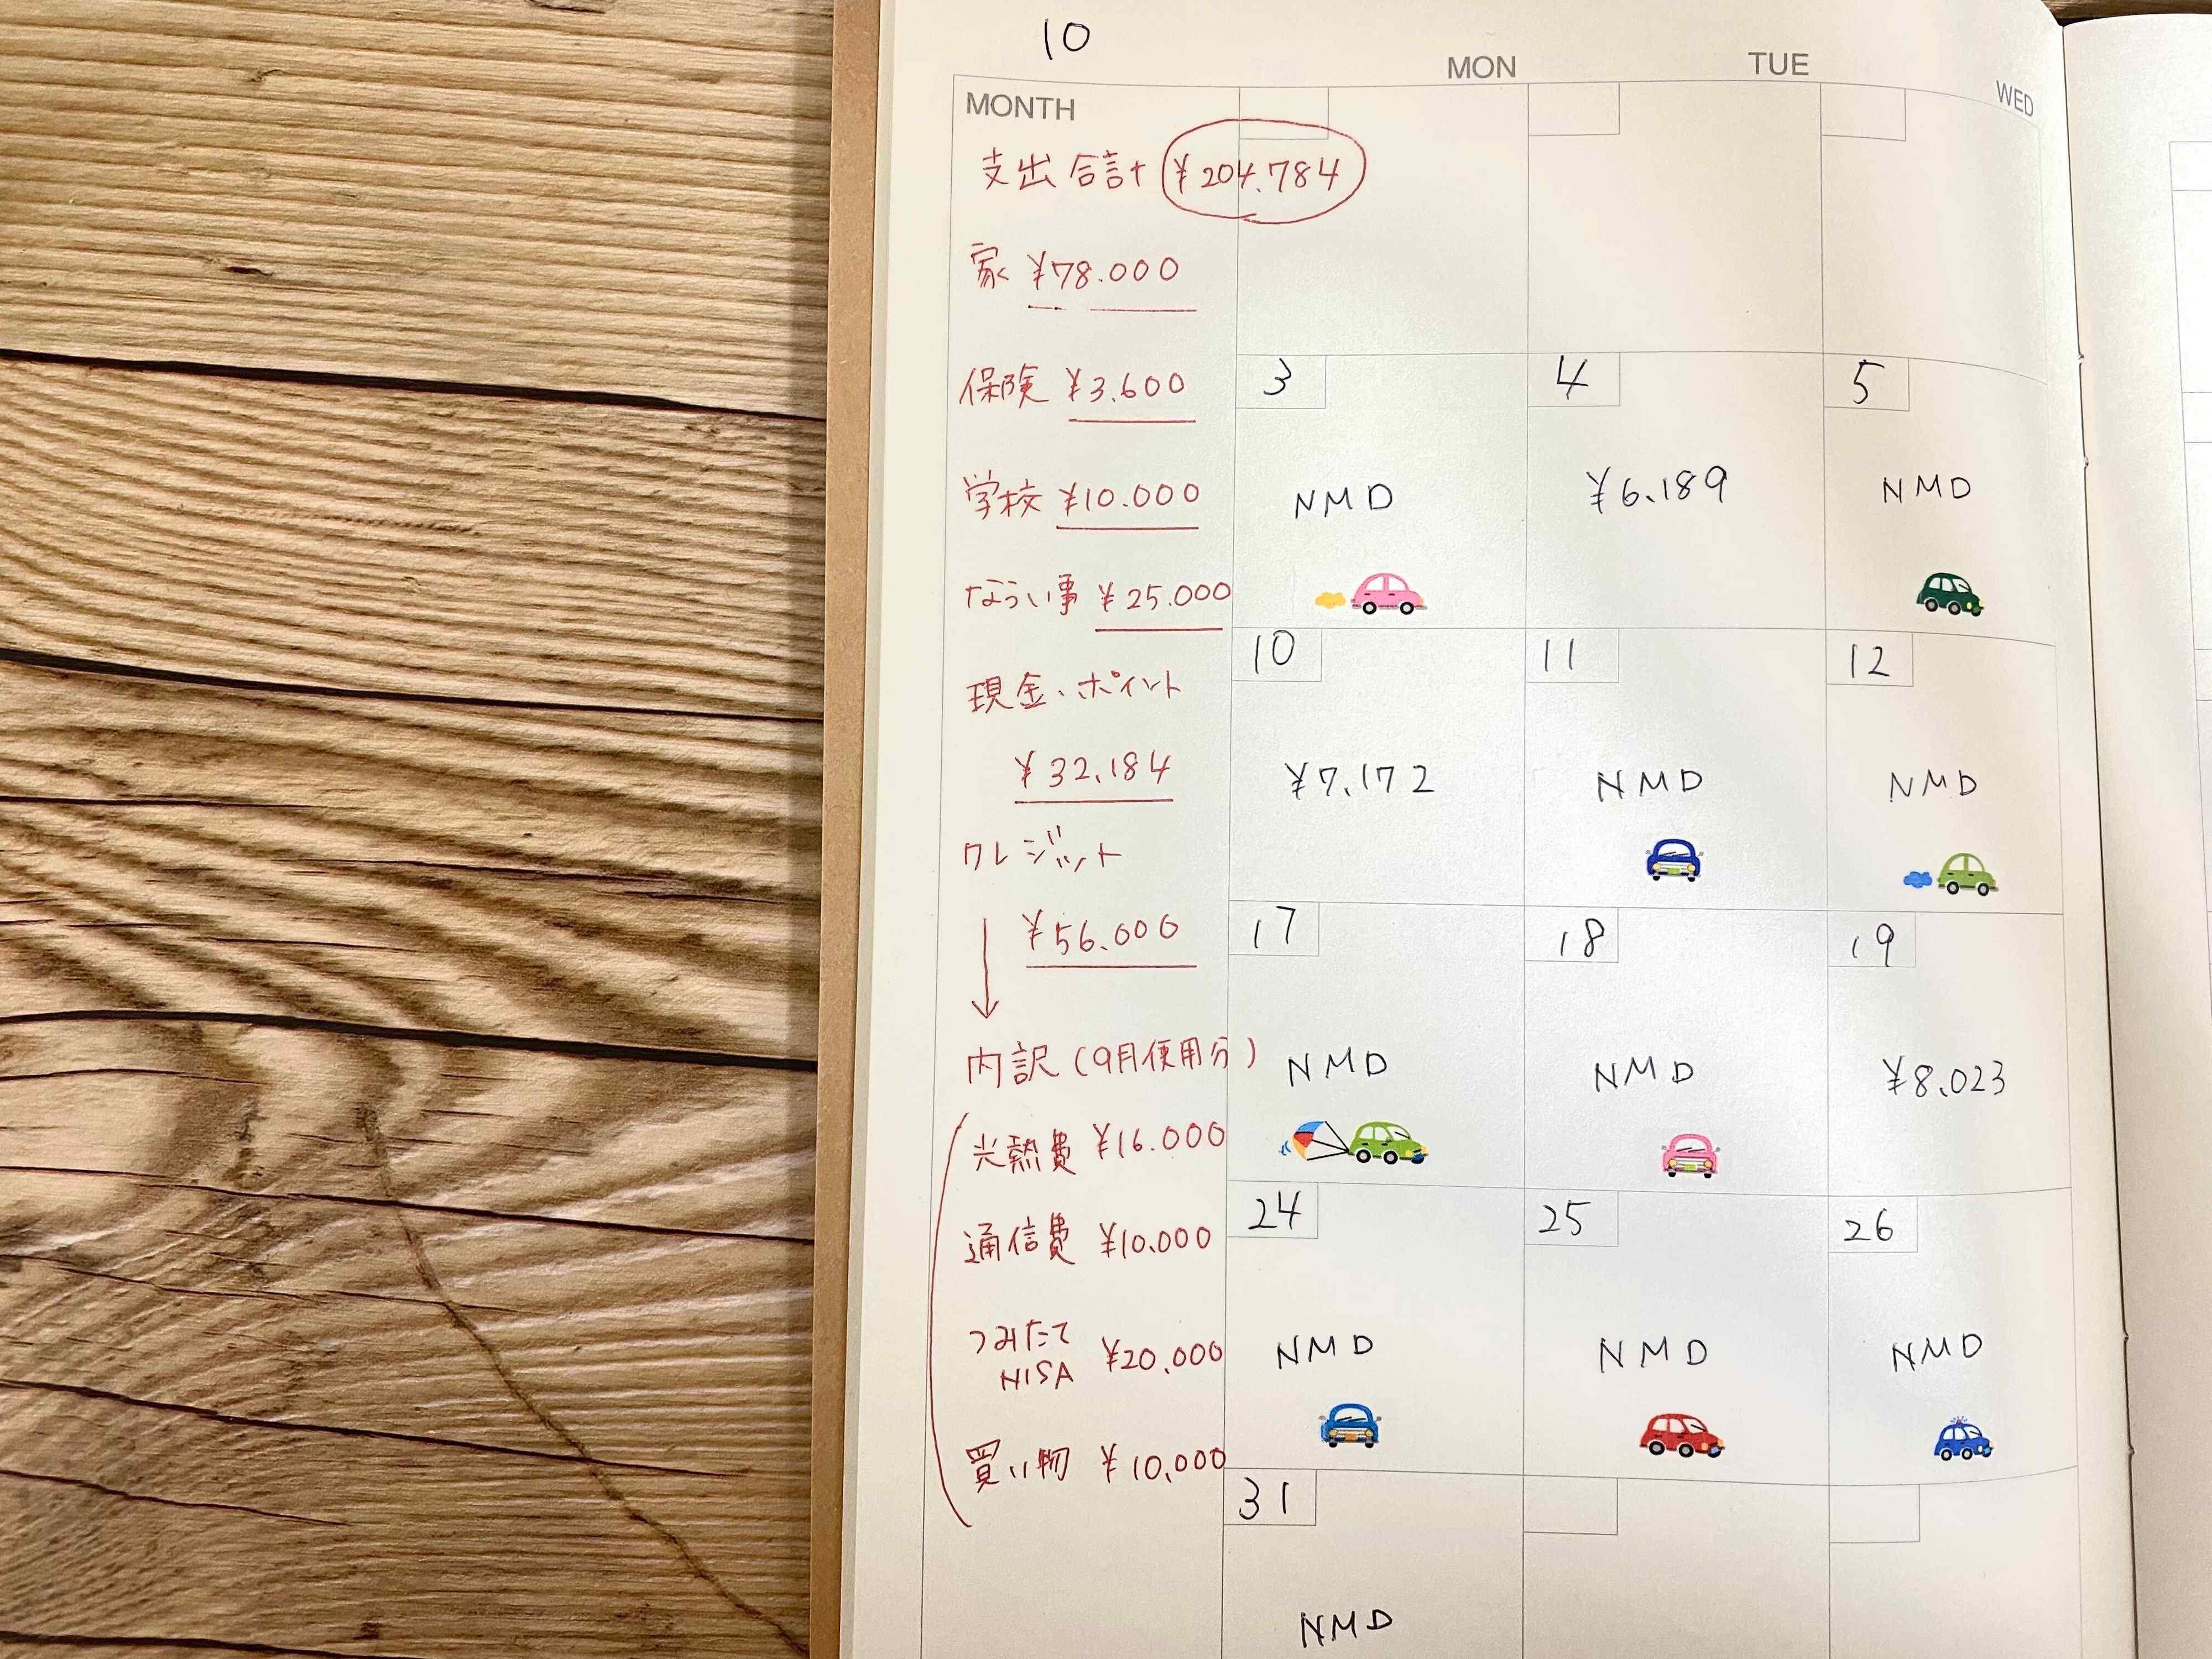 10
MONTH
MON
TUE
WED
支出合計 ¥204.784
家 ¥78.000
保険 ¥3.600
学校 ¥10.000
ならい事 ¥25.000
現金、ポイント
¥32,184
クレジット
¥56.000
内訳(9月使用分)
光熱費 ¥16.000
通信費 ¥10.000
つみたて
NISA ¥20,000
買い物 ¥10,000
3
4
5
NMD
¥6,189
NMD
10
11
12
¥7,172
NMD
NMD
17
18
19
NMD
NMD
¥8.023
24
25
26
NMD
NMD
NMD
31
NMD